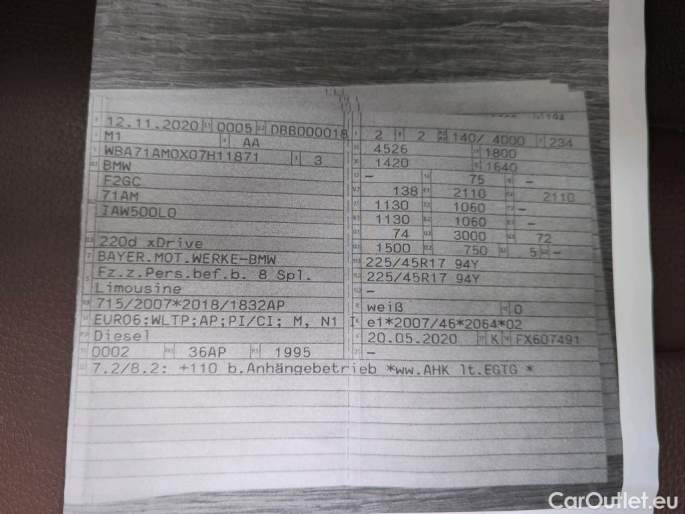 12.11.2020 0005 DBB000018
M1 AA
WBA71AM0X07H11871 3
BMW
F2GC
71AM
IAW500L0
220d xDrive
BAYER.MOT.WERKE-BMW
Fz.z.Pers.bef.b. 8 Spl.
Limousine
715/2007*2018/1832AP
EURO6;WLTP;AP;PI/CI; M, N1 I
Diesel
0002 36AP 1995
2 2 140/ 4000 234
4526 1800
1420 1640
- 75 -
138 2110 2110
1130 1060 -
1130 1060 -
74 3000 72
1500 750 5 -
225/45R17 94Y
225/45R17 94Y
-
weiß 0
e1*2007/46*2064*02
20.05.2020 K FX607491
-
7.2/8.2: +110 b.Anhängebetrieb *ww.AHK lt.EGTG *
CarOutlet.eu